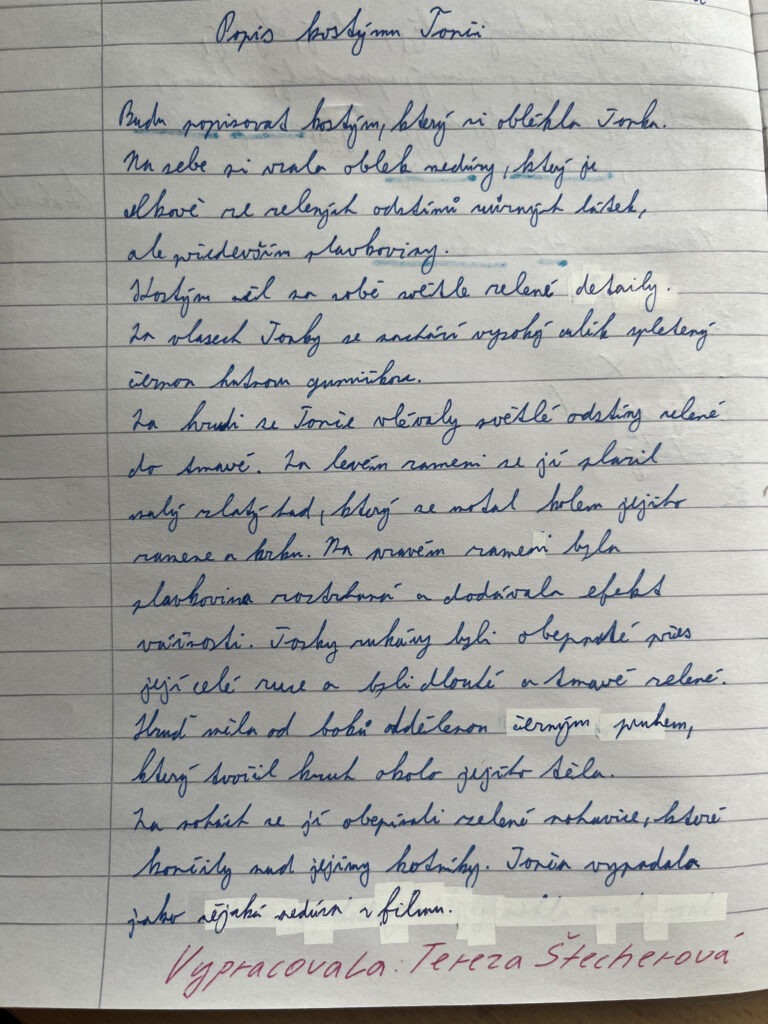 Popis kostýmu Tonči
Budu popisovat kostým, který si oblékla Tonka.
Na sebe si vzala oblek medúzy, který je
celkově ze zelených odstínů různých látek,
ale především slavkoviny.
Kostým měl na sobě světle zelené detaily.
Na vlasech Tonky se nachází vysoký culík spletený
černou hutnou gumičkou.
Na hrudi se Tonče vlévaly světlé odstíny zelené
do tmavé. Na levém rameni se jí plazil
malý zlatý had, který se motal kolem jejího
ramene a krku. Na pravém rameni byla
slavkovina roztrhaná a dodávala efekt
vážnosti. Tonky rukávy byli obepnuté přes
její celé ruce a byli dlouhé a tmavě zelené.
Hruď měla od boků oddělenou černým pruhem,
který tvořil kruh okolo jejího těla.
Na nohách se jí obepínali zelené nohavice, které
končily nad jejími kotníky. Tonča vypadala
jako nějaká medúza z filmu.
Vypracovala: Tereza Štecherová